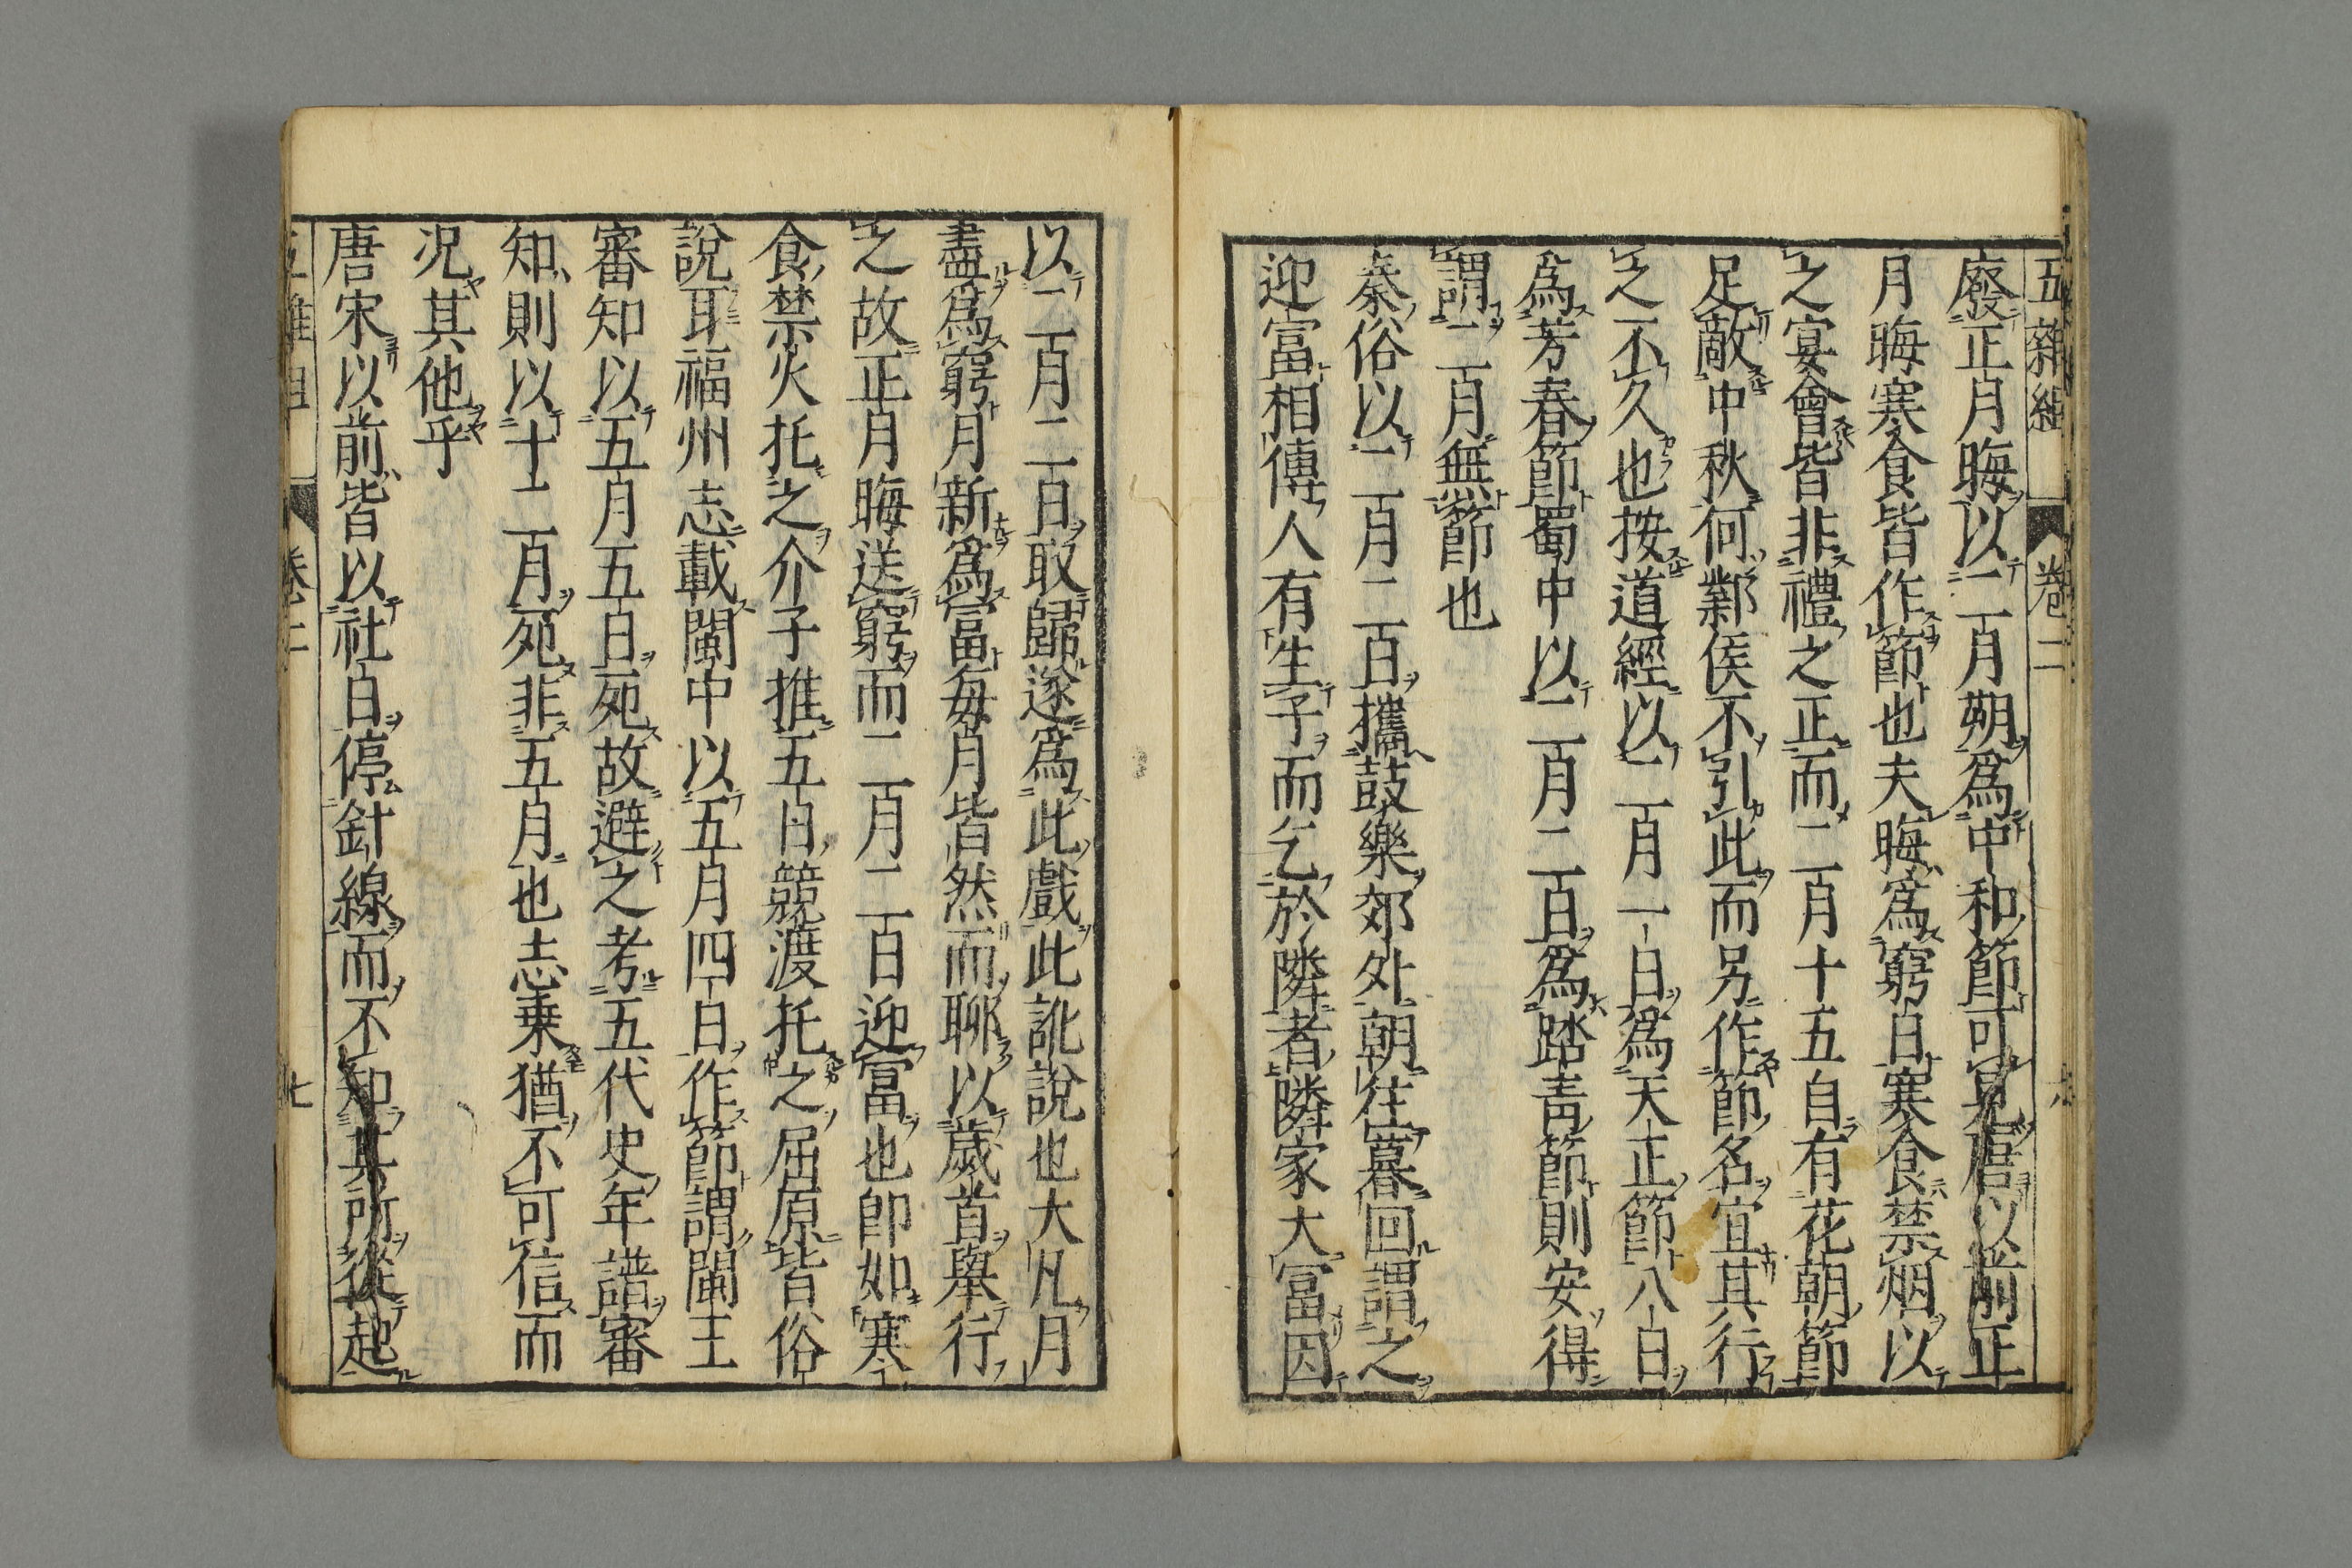 五雜組 卷二
廢正月晦以二月朔爲中和節可見唐以前正
月晦寒食皆作節也夫晦爲窮日寒食禁烟以
之宴會皆非禮之正而二月十五自有花朝節
足敵中秋何鄴侯不引此而另作節名宜其行
之不久也按道經以二月一日爲天正節八日
爲芳春節蜀中以二月二日爲踏青節則安得
謂二月無節也
秦俗以二月二日攜鼓樂郊外朝往暮回謂之
迎富相傳人有生子而乞於隣者隣家大富因
以二月二日取歸遂爲此戲此訛說也大凡月
盡爲窮月新爲富每月皆然而聊以歲首舉行
之故正月晦送窮而二月二日迎富也即如寒
食禁火托之介子推五日競渡托之屈原皆俗
說耳福州志載閩中以五月四日作節謂閩王
審知以五月五日死故避之考五代史年譜審
知則以十二月死非五月也志乗猶不可信而
況其他乎
唐宋以前皆以社日停針線而不知其所從起
五雜組 卷二 七